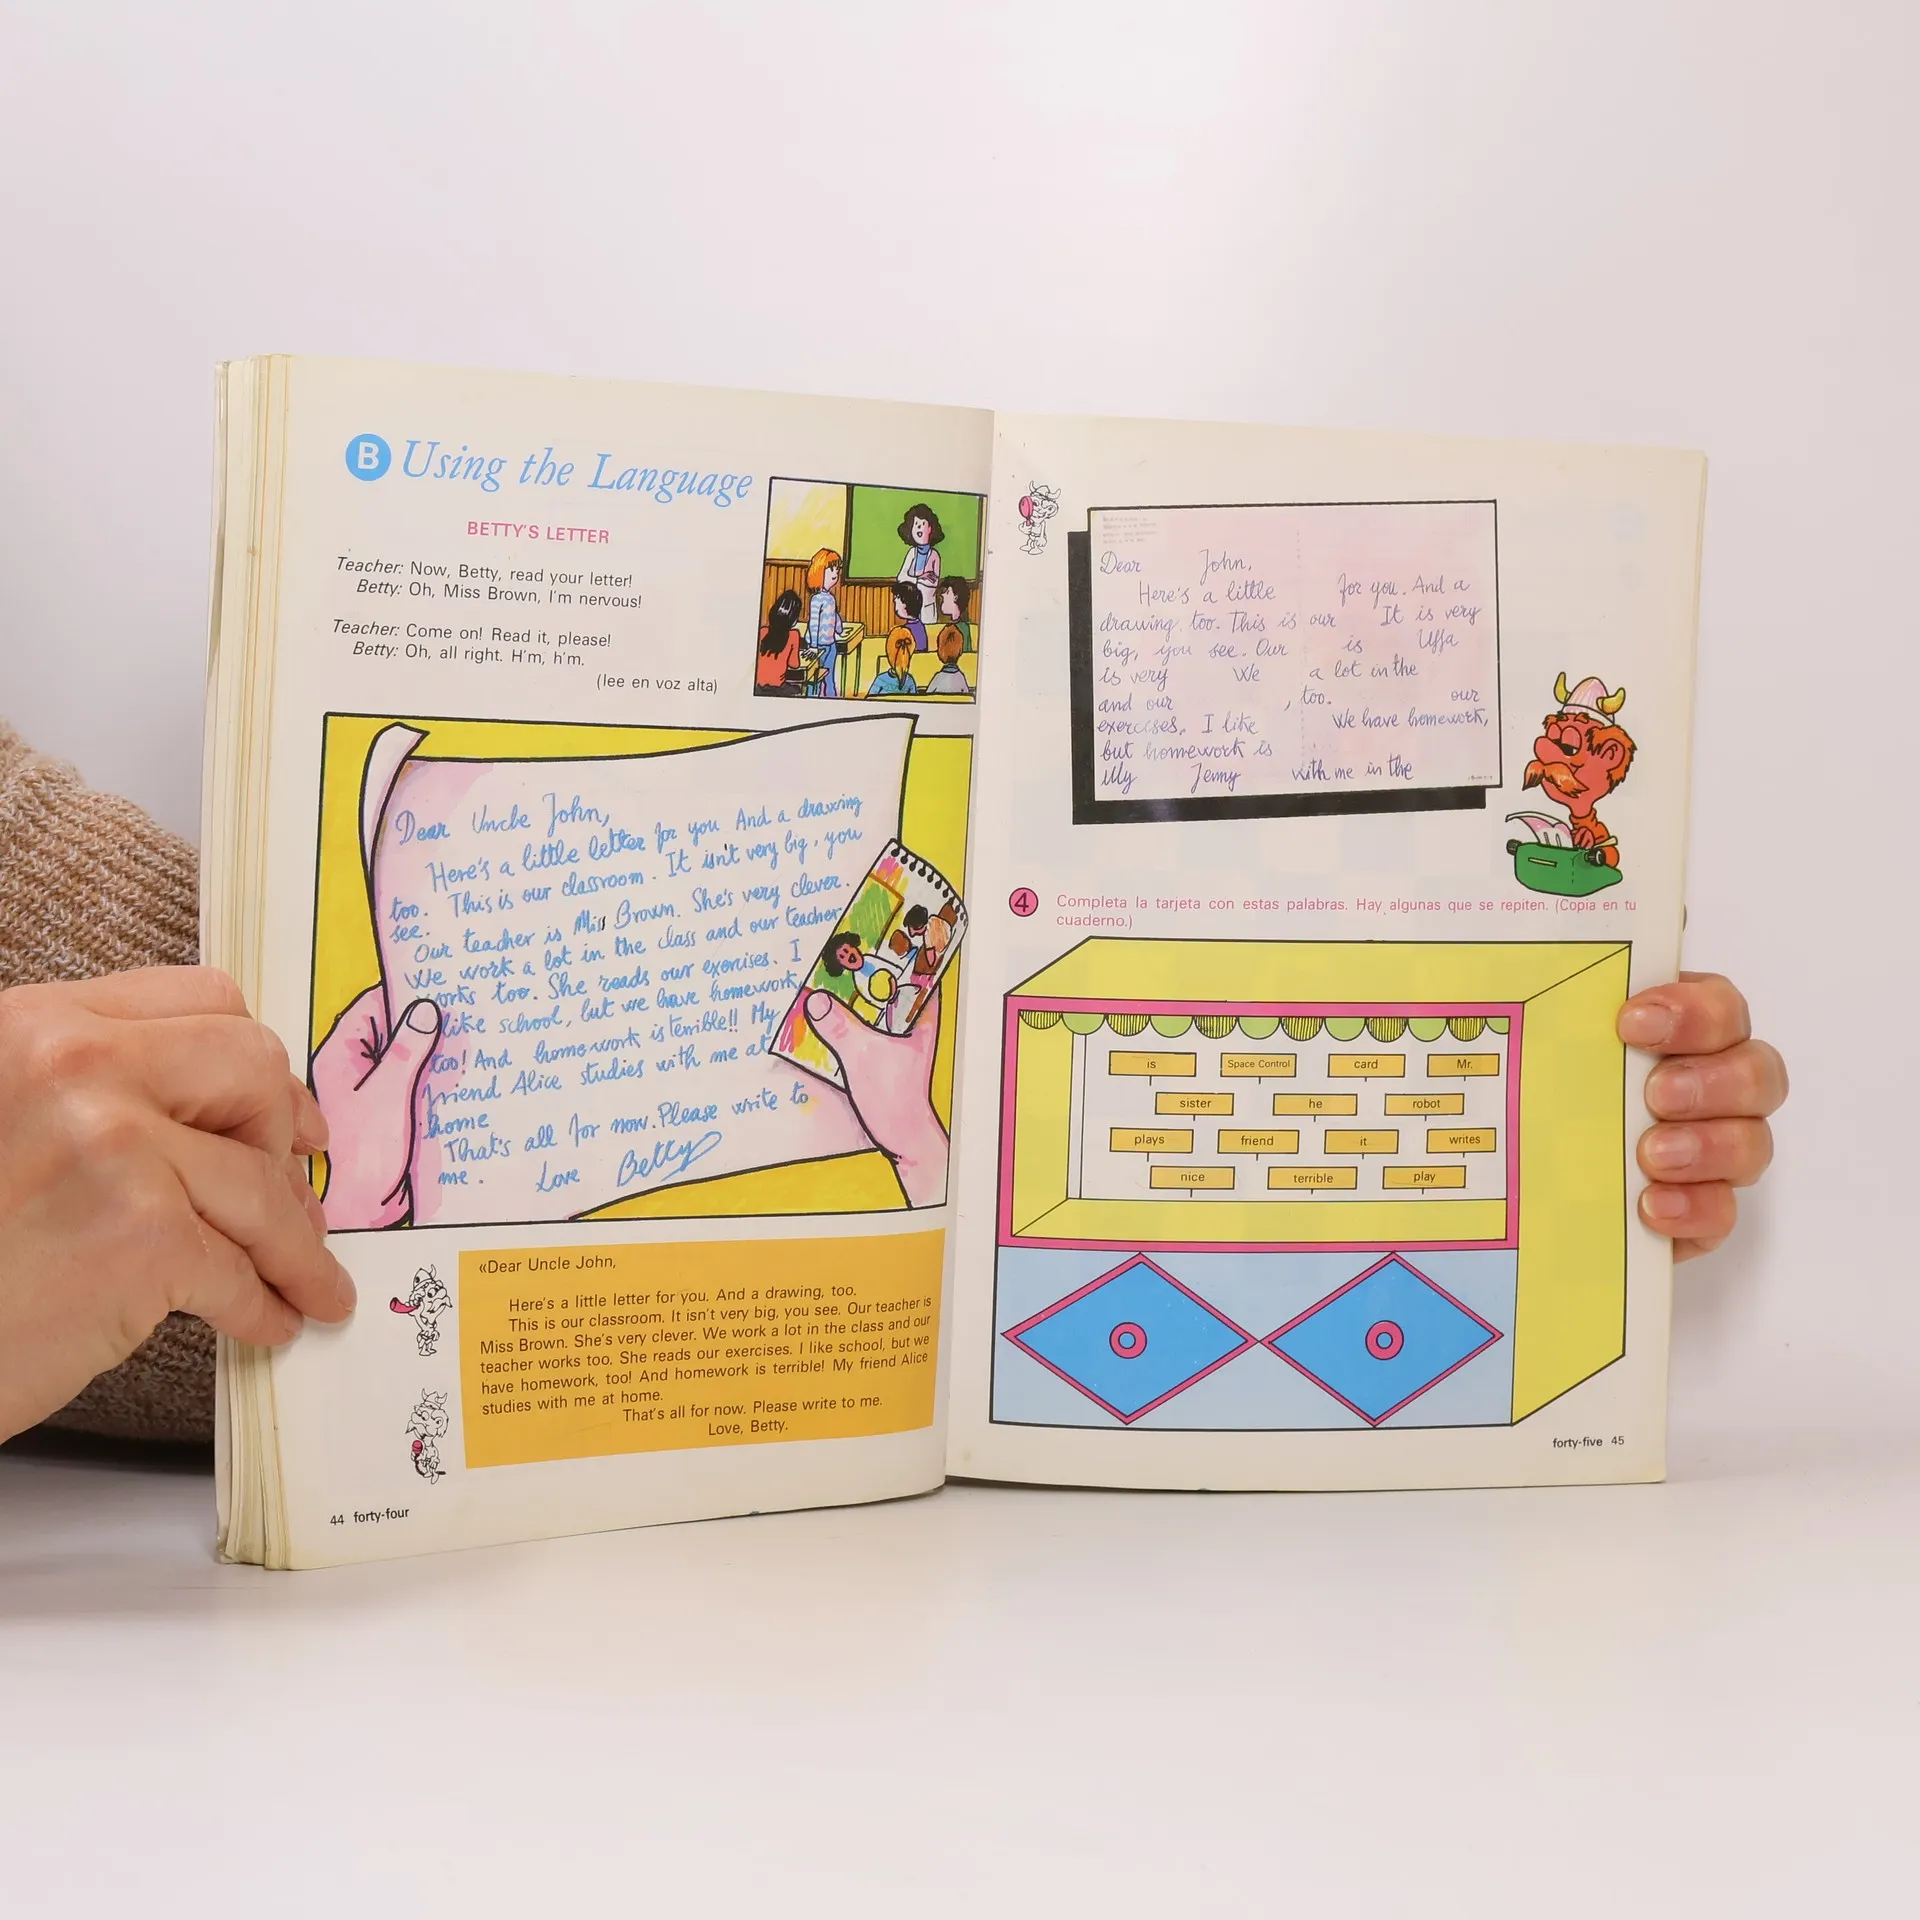 B Using the Language
BETTY'S LETTER
Teacher: Now, Betty, read your letter!
Betty: Oh, Miss Brown, I'm nervous!
Teacher: Come on! Read it, please!
Betty: Oh, all right. H'm, h'm.
(lee en voz alta)
Dear Uncle John,
Here's a little letter for you And a drawing
too. This is our classroom. It isn't very big, you
see.
Our teacher is Miss Brown. She's very clever.
We work a lot in the class and our teacher
works too. She reads our exercises. I
like school, but we have homework,
too! And homework is terrible!! My
friend Alice studies with me at
home
That's all for now. Please write to
me. Love Betty
«Dear Uncle John,
Here's a little letter for you. And a drawing, too.
This is our classroom. It isn't very big, you see. Our teacher is
Miss Brown. She's very clever. We work a lot in the class and our
teacher works too. She reads our exercises. I like school, but we
have homework, too! And homework is terrible! My friend Alice
studies with me at home.
That's all for now. Please write to me.
Love, Betty.
44 forty-four
Dear John,
Here's a little for you. And a
drawing, too. This is our It is very
big, you see. Our is Uffa
is very We a lot in the
and our , too. our
exercises. I like We have homework,
but homework is
My Jenny with me in the
4 Completa la tarjeta con estas palabras. Hay algunas que se repiten. (Copia en tu
cuaderno.)
is Space Control card Mr.
sister he robot
plays friend it writes
nice terrible play
forty-five 45